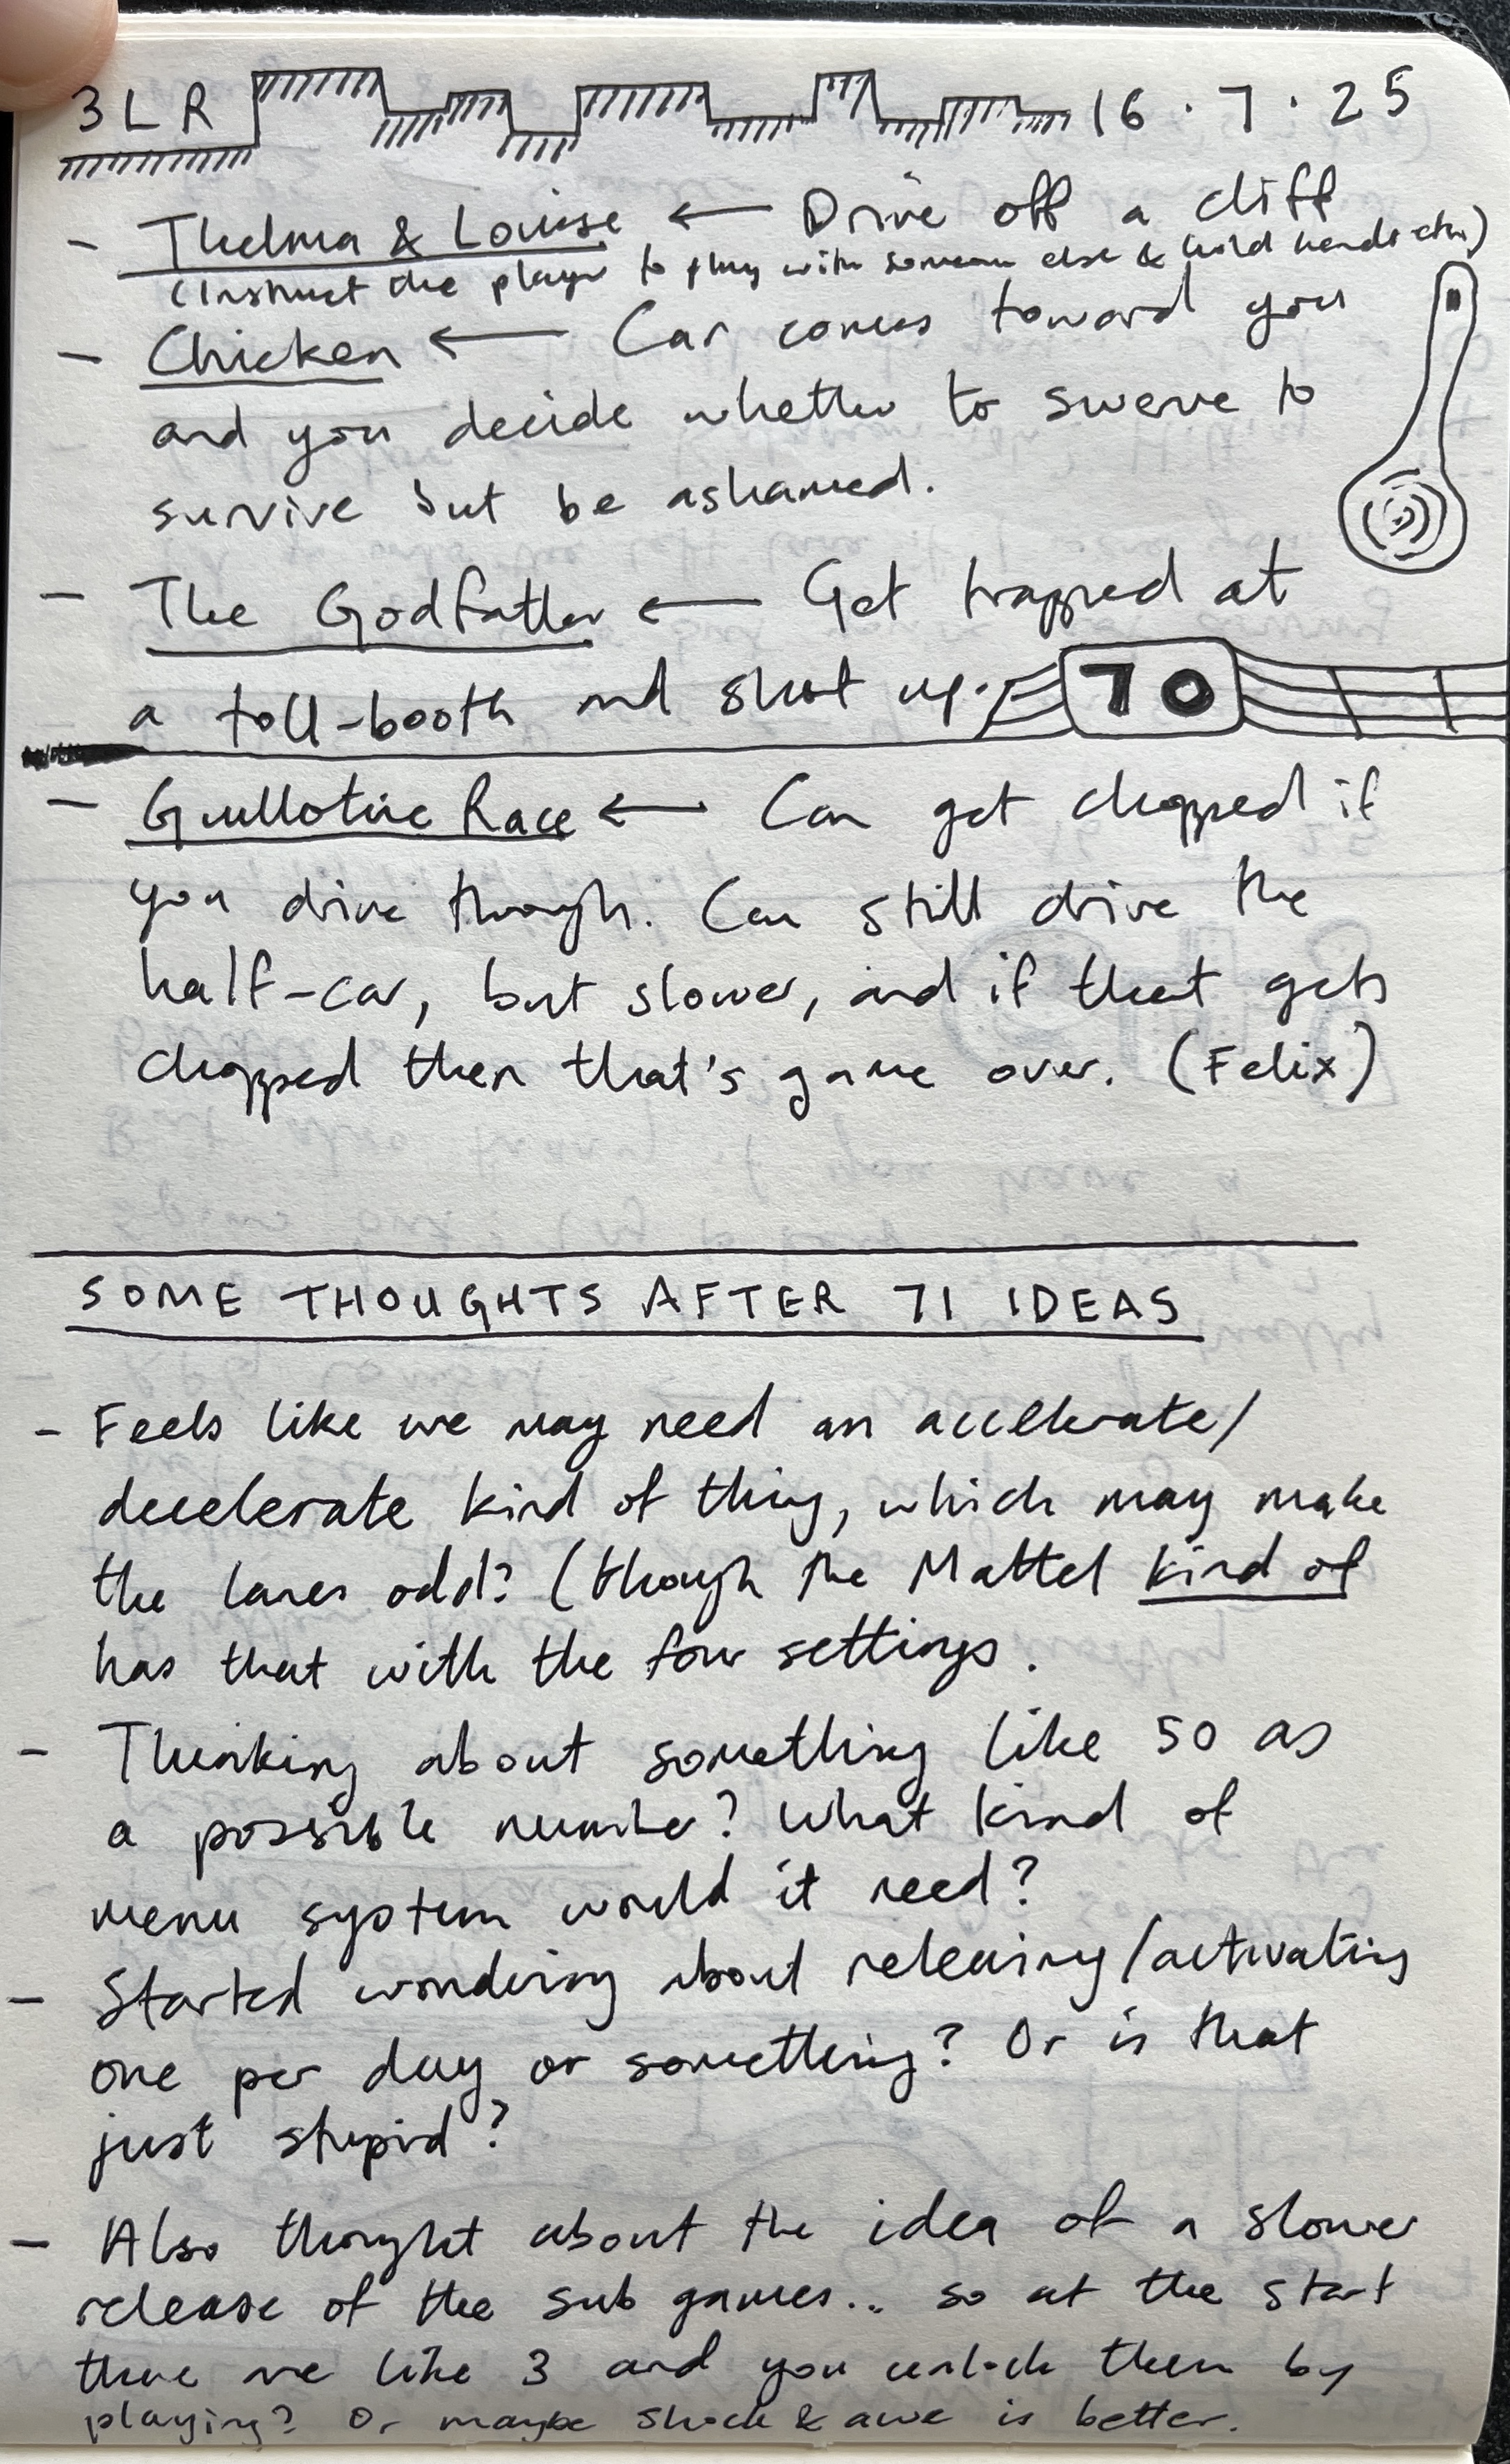 3LR 16.7.25
- Thelma & Louise ← Drive off a cliff
(Instruct the player to play with someone else & hold hands etc.)
- Chicken ← Car comes toward you
and you decide whether to swerve to
survive but be ashamed.
- The Godfather ← Get trapped at
a toll-booth and shot up.
70
- Guillotine Race ← Can get chopped if
you drive through. Can still drive the
half-car, but slower, and if that gets
chopped then that's game over. (Felix)
SOME THOUGHTS AFTER 71 IDEAS
- Feels like we may need an accelerate/
decelerate kind of thing, which may make
the lanes odd? (though the Mattel kind of
has that with the four settings.
- Thinking about something like 50 as
a possible number? What kind of
menu system would it need?
- Started wondering about releasing/activating
one per day or something? Or is that
just stupid?
- Also thought about the idea of a slower
release of the sub games... so at the start
there are like 3 and you unlock them by
playing? Or maybe shock & awe is better.